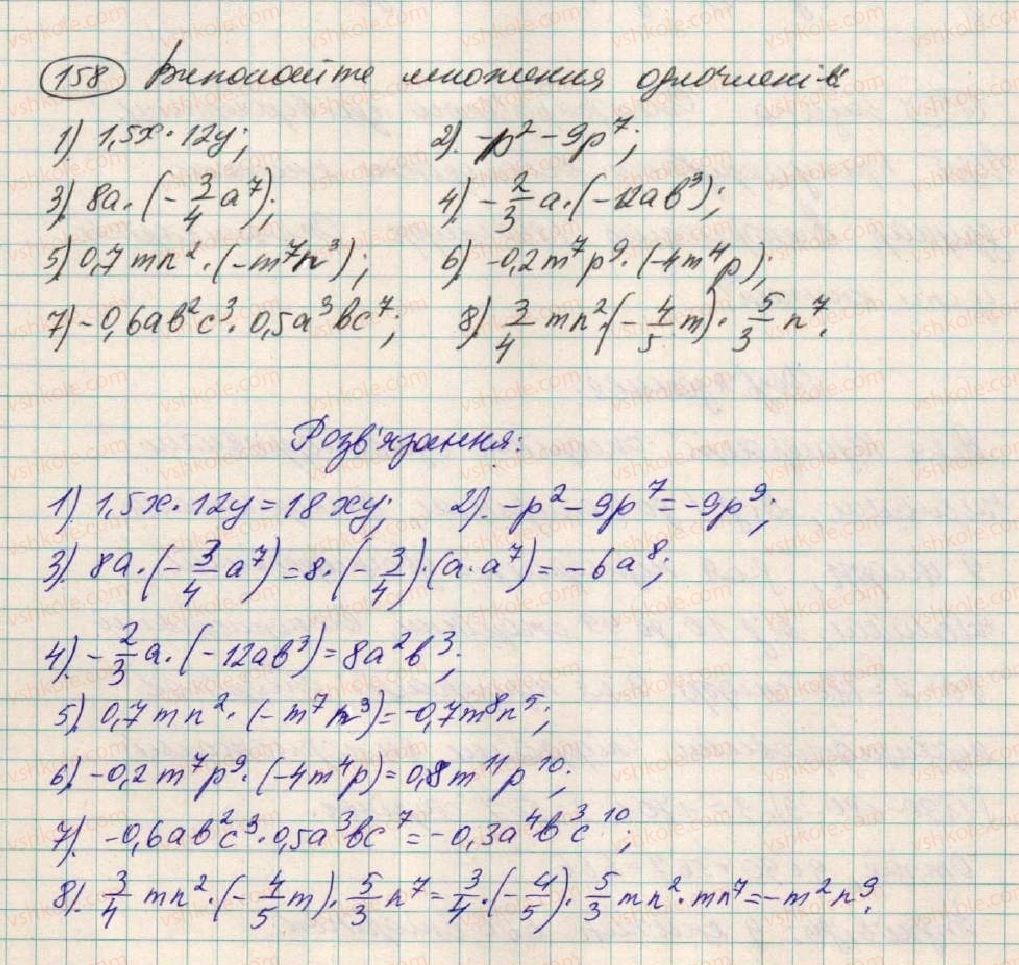 158 Виконайте множення одночленів
1) 1,5x · 12y; 2) -p² - 9p⁷;
3) 8a · (-3/4 a⁷); 4) -2/3 a · (-12ab³);
5) 0,7mn² · (-m⁷n³); 6) -0,2m⁷p⁹ · (-4m⁴p);
7) -0,6ab²c³ · 0,5a³bc⁷; 8) 3/4 mn² · (-4/5 m) · 5/3 n⁷.
Розв'язання:
1) 1,5x · 12y = 18xy; 2) -p² - 9p⁷ = -9p⁹;
3) 8a · (-3/4 a⁷) = 8 · (-3/4) · (a · a⁷) = -6a⁸;
4) -2/3 a · (-12ab³) = 8a²b³;
5) 0,7mn² · (-m⁷n³) = -0,7m⁸n⁵;
6) -0,2m⁷p⁹ · (-4m⁴p) = 0,8m¹¹p¹⁰;
7) -0,6ab²c³ · 0,5a³bc⁷ = -0,3a⁴b³c¹⁰;
8) 3/4 mn² · (-4/5 m) · 5/3 n⁷ = 3/4 · (-4/5) · 5/3 mn² · mn⁷ = -m²n⁹.